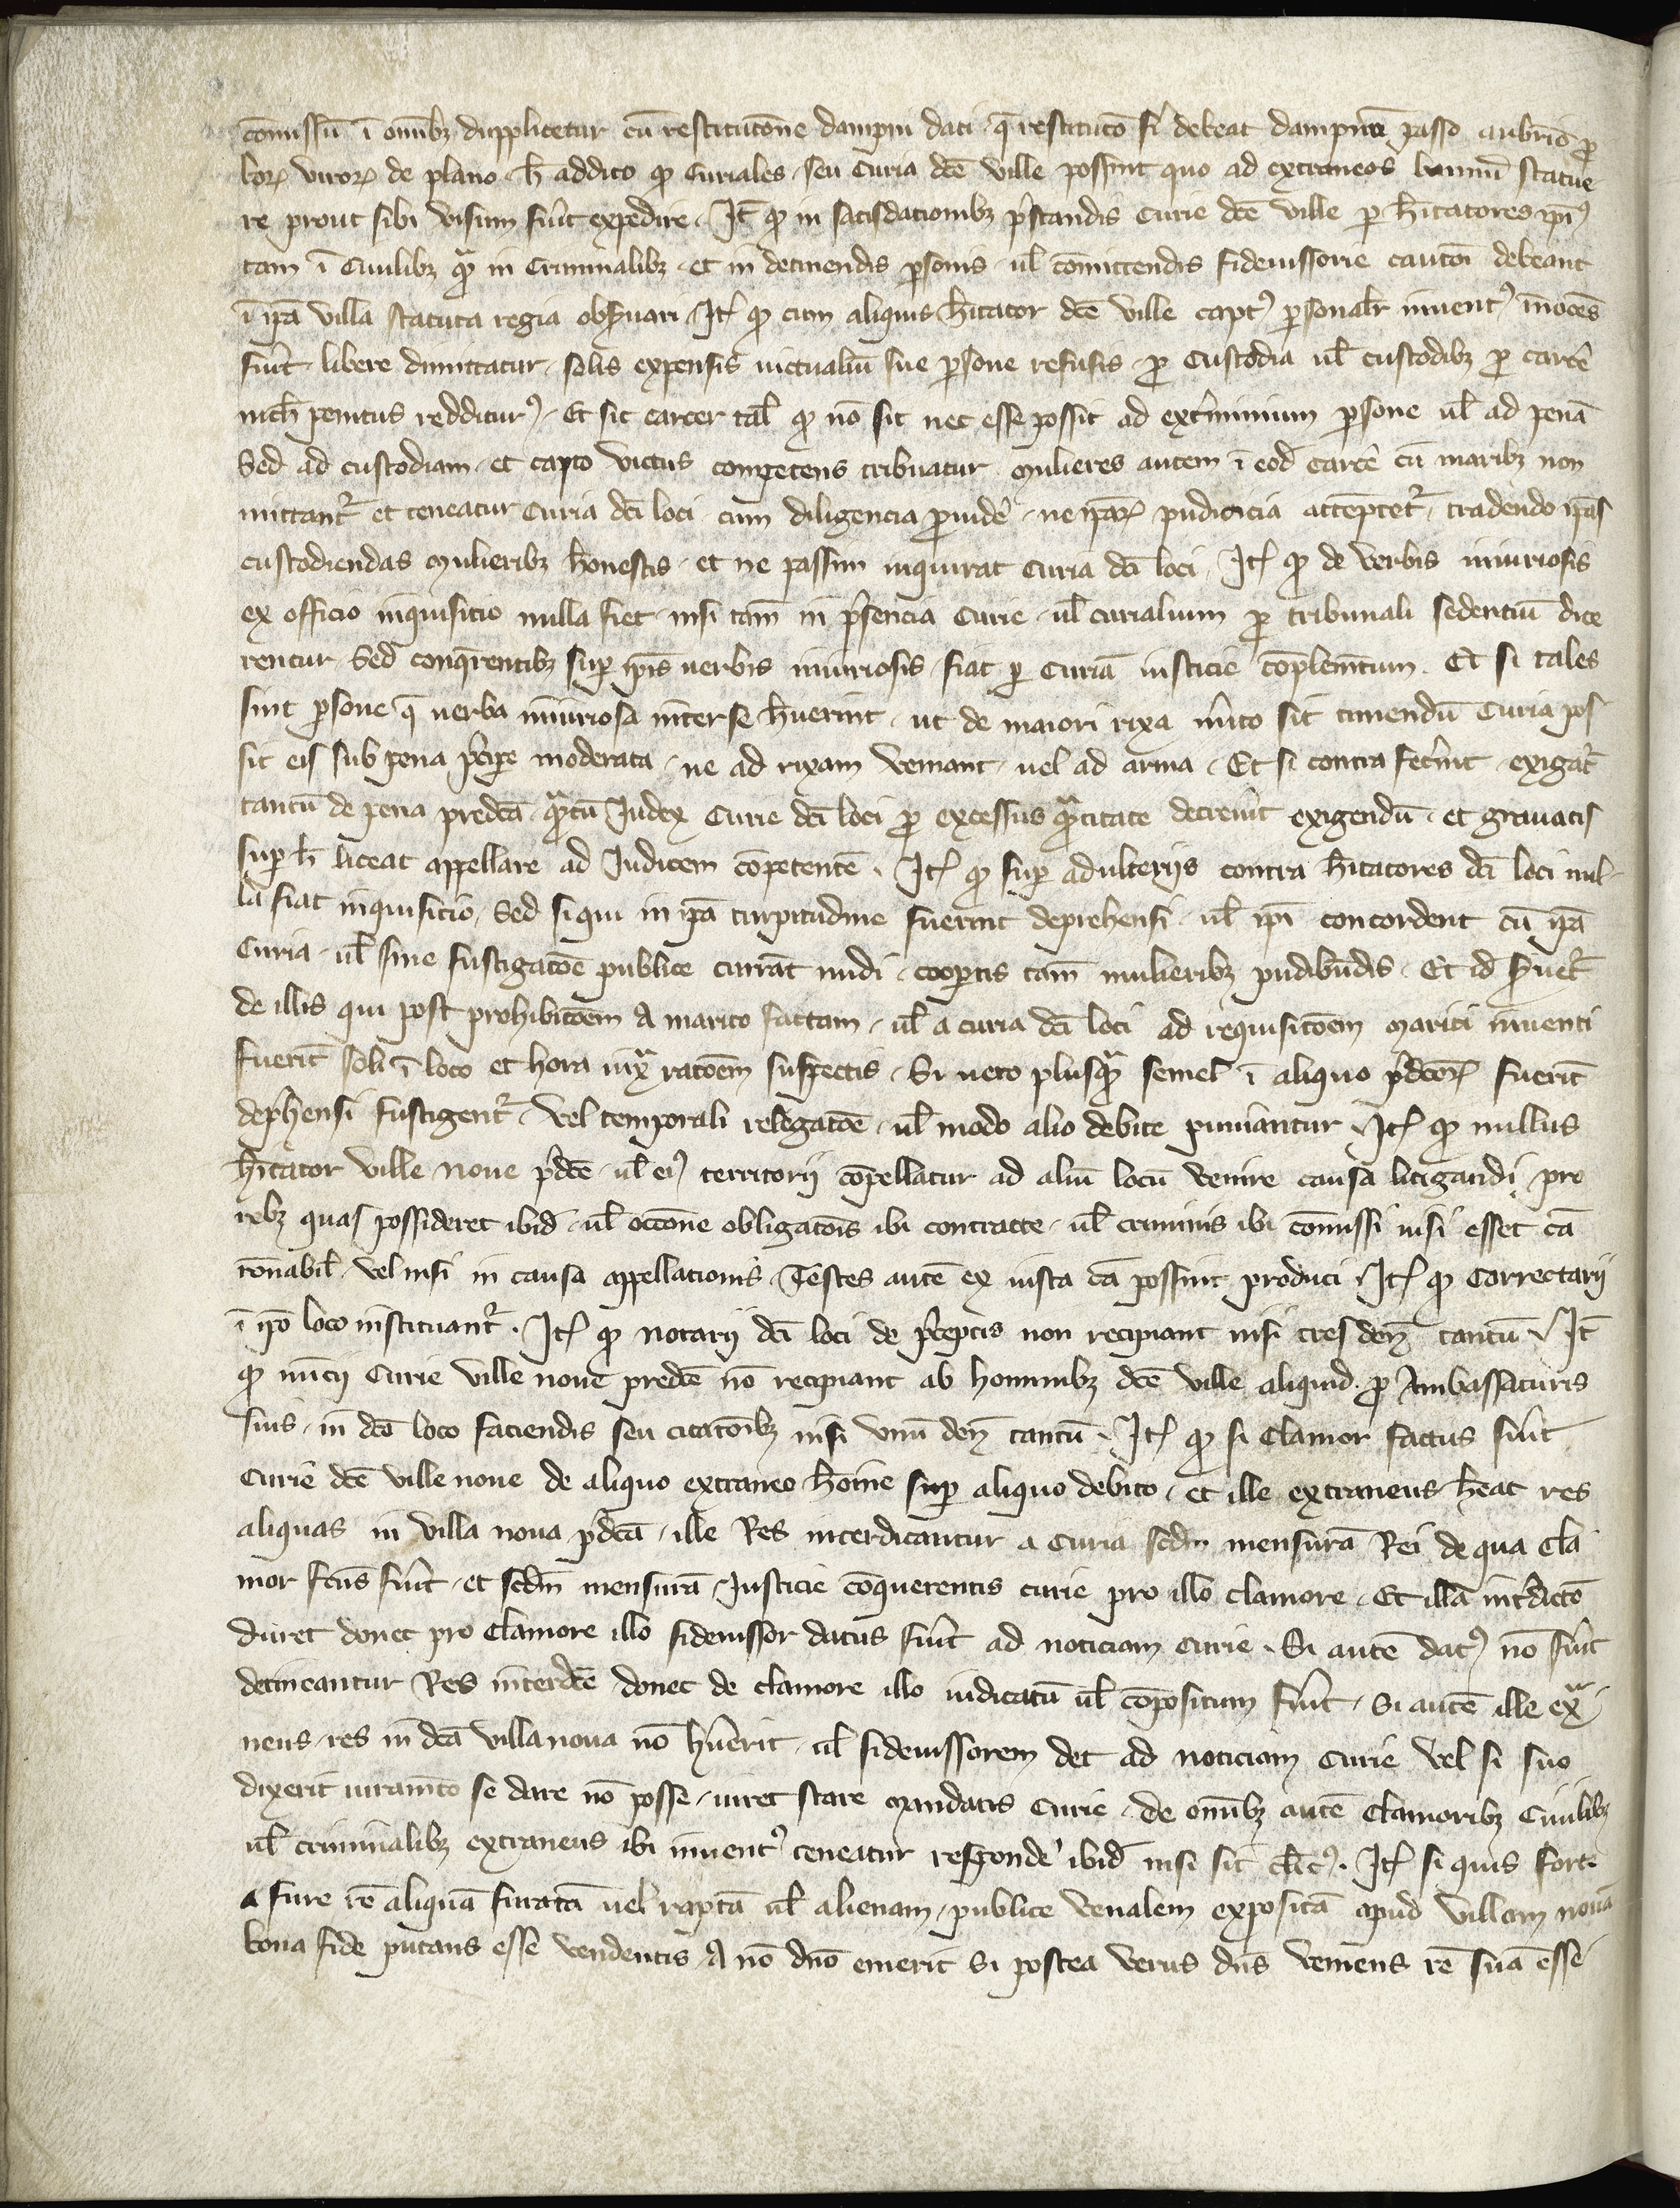 co̅missu̅ i̅ om̅ibꝫ dupplicetur cu̅ restituto̅ne dampni dati q̅ restituto̅ fi̅ debeat dampnu̅ passo ꝓ
boꝝ viroꝝ de plano h̅ addito ꝙ Curiales seu Curia dc̅e ville possint quo ad extraneos bannu̅ statue
re prout sibi visum fu̅it expedire It̅ ꝙ in satisdacionibꝫ p̅standis Curie dc̅e ville per h̅itatores ip̅iꝰ
tam i̅ Ciuilibꝫ qᵃm in Criminalibꝫ et in detinendis ꝑsonis ul̅ co̅mittendis fideiussorie cauto̅i debeant
i̅ ip̅a villa statuta regia obs̅uari It̅ ꝙ cum aliquis h̅itator dc̅e ville captꝰ ꝑsonal̅r inuentꝰ in̅oce̅s
fu̅it libere dimittatur solis expensis uictualiu̅ sue ꝑsone refusis ꝓ Custodia ul̅ custodibꝫ ꝓ carce̅
nich̅ penitus redditurꝰ Et sit carcer tal̅ ꝙ no̅ sit nec esse possit ad ext̅minium ꝑsone ul̅ ad pena̅
Sed ad custodiam et capto victus competens tribuatur mulieres autem i̅ eod̅ carce̅ cu̅ maribꝫ non
mittant̅ et teneatur Curia dc̅i loci cum diligencia ꝓuide̅ ne ip̅aꝝ pudicicia attemptet̅ tradendo ip̅as
custodiendas mulieribꝫ honestis et ne passim inquirat Curia dc̅i loci It̅ ꝙ de verbis iniuriosis
ex officio inquisitio nulla fiet nisi tam̅ in p̅sencia Curie ul̅ curialium ꝓ tribunali sedentiu̅ dice
rentur Sed conq̅rentibꝫ suꝑ ip̅is uerbis iniuriosis fiat ꝑ Curia̅ iusticie co̅plem̅tum Et si tales
sint ꝑsone q̅ uerba iniuriosa inter se h̅uerint ut de maiori rixa m̅ito sit timendu̅ Curia pos
sit eis sub pena p̅cipe̅ moderata ne ad rixam veniant uel ad arma Et si contra fec̅int exigat̅
tantu̅ de pena predc̅a qᵃntu̅ Iudex Curie dc̅i loci ꝓ excessus qᵃntitate decreuit̅ exigendu̅ et grauatis
suꝑ h̅ liceat appellare ad Iudicem co̅petente̅ It̅ ꝙ suꝑ adulterijs contra h̅itatores dc̅i loci nul
la fiat inquisicio Sed si qui in ip̅a turpitudine fuerint deprehensi ul̅ ip̅i concordent cu̅ ip̅a
Curia ul̅ sine fustigato̅e publice currant nudi coopertis tam̅ mulieribꝫ pudibu̅dis Et id̅ s̅uet̅
de illis qui post prohibito̅em a marito factam ul̅ a curia dc̅i loci ad requisito̅em mariti inuenti
fuerit̅ soli i̅ loco et hora iuxᵃ rato̅em suspectis Si uero plusqᵃm semel i̅ aliquo p̅dc̅oꝝ fuerit̅
dep̅hensi fustigent̅ vel temporali relegato̅e ul̅ modo alio debite puniantur It̅ ꝙ nullus
h̅itator ville noue p̅dc̅e ul̅ eiꝰ territorij co̅pellatur ad aliu̅ locu̅ venire causa litigandi pro
rebꝫ quas possideret ibid̅ ul̅ occo̅ne obligato̅is ibi contracte ul̅ criminis ibi co̅missi nisi esset ca̅
ro̅nabil̅ vel nisi in causa appellationis Testes aute̅ ex iusta ca̅ possint produci It̅ ꝙ Correctarij
i̅ ip̅o loco instituant̅ It̅ ꝙ notarij dc̅i loci de p̅ceptis non recipiant nisi tres deꝝ tantu̅ It̅
ꝙ nu̅cij Curie ville noue predc̅e no̅ recipiant ab hominibꝫ dc̅e ville aliquid ꝓ Ambassaturis
suis in dc̅o loco faciendis seu citato̅ibꝫ nisi unu̅ deꝝ tantu̅ It̅ ꝙ si Clamor factus fu̅it
Curie dc̅e ville noue de aliquo extraneo ho̅ine suꝑ aliquo debito et ille extraneus h̅eat res
aliquas in villa noua p̅dc̅a ille Res interdicantur a Curia scd̅m mensura̅ Rei de qua Cla
mor fc̅us fu̅it et scd̅m mensura̅ Iusticie co̅querentis curie pro illo clamore Et illa int̅dicto̅
duret donec pro Clamore illo fideiussor datus fu̅it ad noticiam Curie Si aute̅ datꝰ no̅ fu̅it
detineantur Res interdc̅e donec de clamore illo iudicatu̅ ul̅ co̅positum fu̅it Si aute̅ ille extᵃ
neus res in dc̅a villa noua no̅ h̅uerit ul̅ fideiussorem det ad noticiam Curie vel si suo
dixerit iuram̅to se dare no̅ posse iuret stare mandatis Curie de om̅ibꝫ aute̅ Clamoribꝫ Ciuilibꝫ
ul̅ criminalibꝫ extraneus ibi inuentꝰ teneatur responde̅ ibid̅ nisi sit cl̅icꝰ It̅ si quis forte
a fure re̅ aliqua̅ furata̅ uel rapta̅ ul̅ alienam publice venalem exposita̅ apud villam noua̅
bona fide putans esse vendentis a no̅ dn̅o emerit Si postea verus dn̅s veniens re̅ sua̅ esse